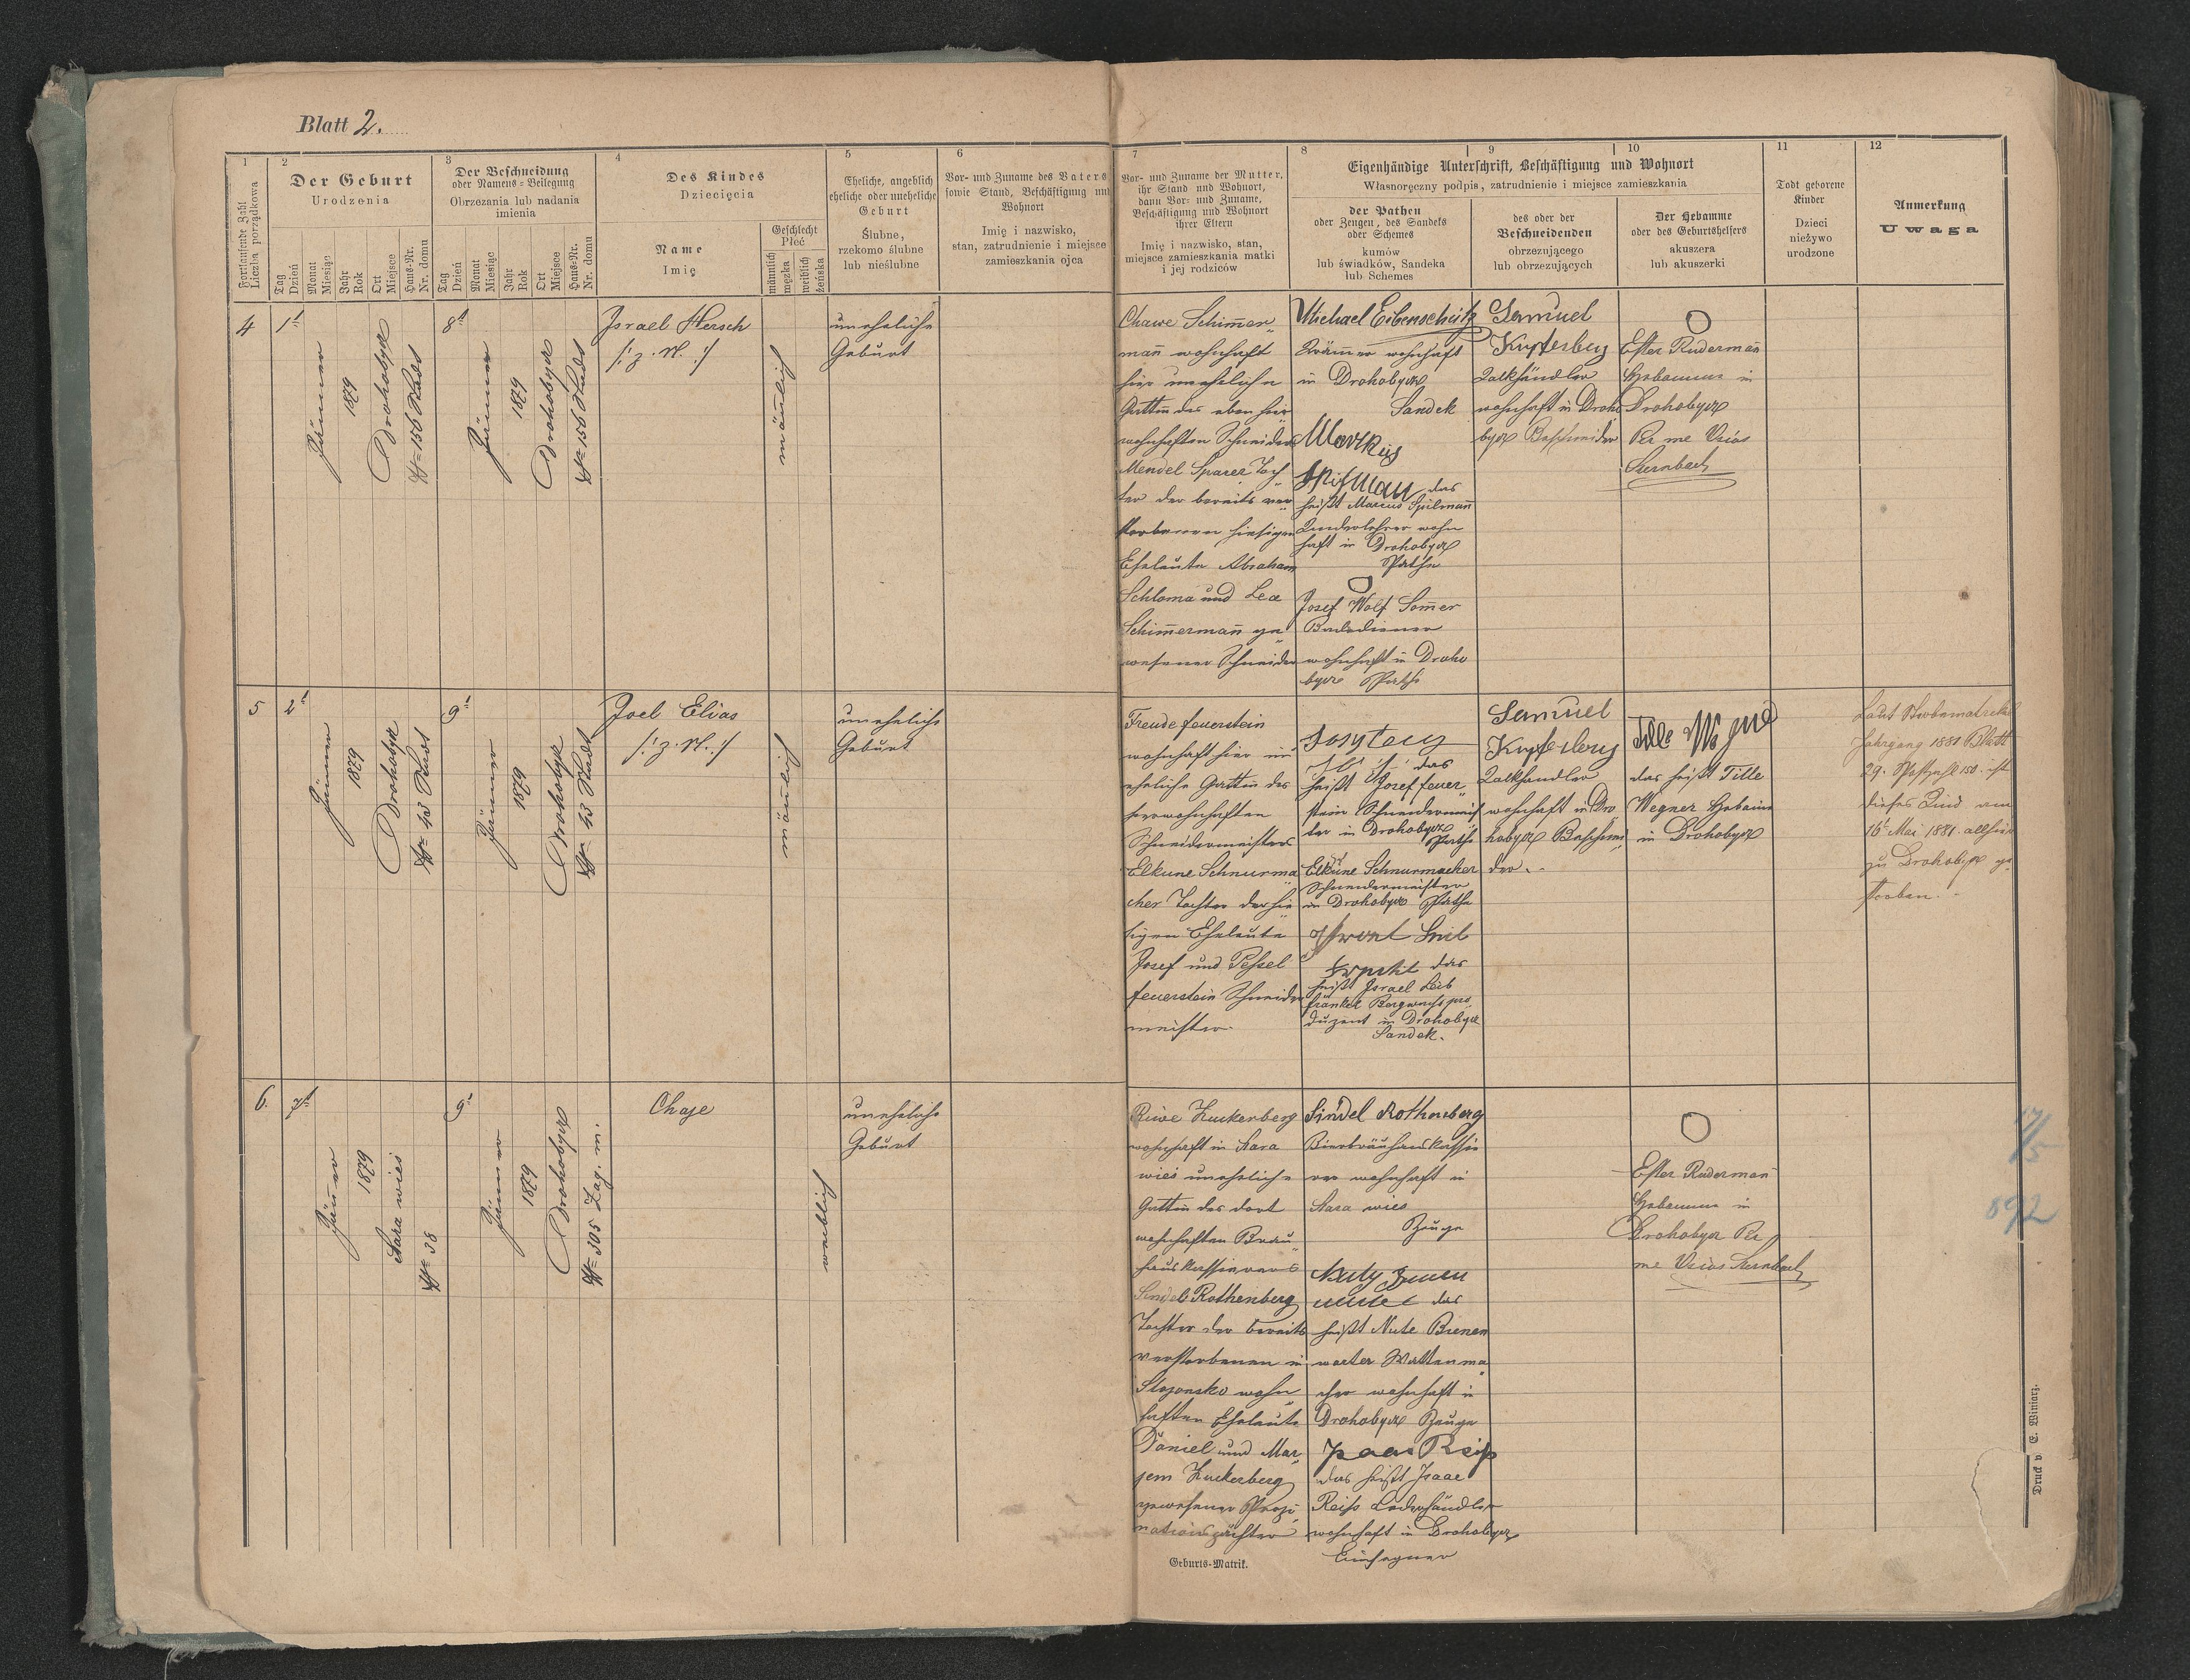 Blatt 2.
1
Fortlaufende Zahl
Liczba porządkowa
2
Der Geburt
Urodzenia
Tag
Dzień
Monat
Miesiąc
Jahr
Rok
Ort
Miejsce
Haus-Nr.
Nr. domu
3
Der Beschneidung
oder Namens-Beilegung
Obrzezania lub nadania
imienia
Tag
Dzień
Monat
Miesiąc
Jahr
Rok
Ort
Miejsce
Haus-Nr.
Nr. domu
4
Des Kindes
Dziecięcia
Name
Imię
Geschlecht
Płeć
männlich
męzka
weiblich
żeńska
5
Eheliche, angeblich
eheliche oder uneheliche
Geburt
Ślubne,
rzekomo ślubne
lub nieślubne
6
Vor- und Zuname des Vaters
sowie Stand, Beschäftigung und
Wohnort
Imię i nazwisko,
stan, zatrudnienie i miejsce
zamieszkania ojca
7
Vor- und Zuname der Mutter,
ihr Stand und Wohnort,
dann Vor- und Zuname,
Beschäftigung und Wohnort
ihrer Eltern
Imię i nazwisko, stan,
miejsce zamieszkania matki
i jej rodziców
8
9
10
Eigenhändige Unterschrift, Beschäftigung und Wohnort
Własnoręczny podpis, zatrudnienie i miejsce zamieszkania
der Pathen
oder Zeugen, des Sandeks
oder Schemes
kumów
lub świadków, Sandeka
lub Schemes
des oder der
Beschneidenden
obrzezującego
lub obrzezujących
Der Hebamme
oder des Geburtshelfers
akuszera
lub akuszerki
11
Todt geborene
Kinder
Dzieci
nieżywo
urodzone
12
Anmerkung
Uwaga
4
1t
Jänner
1879
Drohobycz
No 156 Stadt
8t
Jänner
1879
Drohobycz
No 156 Stadt
Israel Hersch
/: z. N. :/
männlich
uneheliche
Geburt
Chawe Schimer„
mann wohnhaft
hier uneheliche
Gattin des eben hier
wohnhaften Schneiders
Mendel Sparer Toch„
ter der bereits ver„
storbenen hiesigen
Eheleute Abraham
Schloma und Lea
Schimermann ge„
wesener Schneider
Michael Eibenschütz
Krämer wohnhaft
in Drohobycz
Sandek
Markus
das
heißt Marcus Spilmann
Kinderlehrer wohn
haft in Drohobycz
Pathe
Josef Wolf Somer
Badediener
wohnhaft in Droho
bycz Pathe
Samuel
Kupferberg
Kalkhändler
wohnhaft in Droho
bycz Beschneider
Ester Rudermann
Hebamme in
Drohobycz
Per me
Sternbach
5
2t
Jänner
1879
Drohobycz
No 43 Stadt
9t
Jänner
1879
Drohobycz
No 43 Stadt
Joel Elias
/: z. N. :/
männlich
uneheliche
Geburt
Freude Feuerstein
wohnhaft hier un„
eheliche Gattin des
hierwohnhaften
Schneidermeisters
Elkune Schnurma„
cher Tochter der hie„
sigen Eheleute
Josef und Pessel
Feuerstein Schneider
meister.
das
heißt Josef Feuer„
stein Schneidermeis
ter in Drohobycz
Pathe
Elkune Schnurmacher
Schneidermeister
in Drohobycz Pathe
das
heißt Israel Leib
Fränkel Bergwachspro„
duzent in Drohobycz
Sandek.
Samuel
Kupferberg
Kalkhändler
wohnhaft in Dro
hobycz Beschnei„
der.
das heißt Tille
Wegner Hebamme
in Drohobycz
Laut Sterbematrikel
Jahrgang 1881 Blatt
29. Postzahl 150. ist
dieses Kind am
16t Mai 1881. allhier
zu Drohobycz ge„
storben.
6.
7t
Jänner
1879
Stara wies
No 38
9t
Jänner
1879
Drohobycz
No 305 Lag. m.
Chaje
weiblich
uneheliche
Geburt
Riwe Zuckerberg
wohnhaft in Stara
wies uneheliche
Gattin des dort
wohnhaften Brau„
hauskassierers
Sindel Rothenberg
Tochter der bereits
verstorbenen in
wohn„
haften Eheleute
Daniel und Mar„
jem Zuckerberg
gewesener Propi„
nationspächter
Sindel Rothenberg
Bierbräuhauskassie
rer wohnhaft in
Stara wies
Zeuge
das
heißt Nute Bienen
warter Wattenma„
cher wohnhaft in
Drohobycz Zeuge
Isaac Reiß
das heißt Isaac
Reiss Lederhändler
wohnhaft in Drohobycz
Einsegner
Ester Ruderman
Hebamme in
Drohobycz Per
me Sternbach
17/5
892
Geburts-Matrik.
Druck v. E. Winiarz.